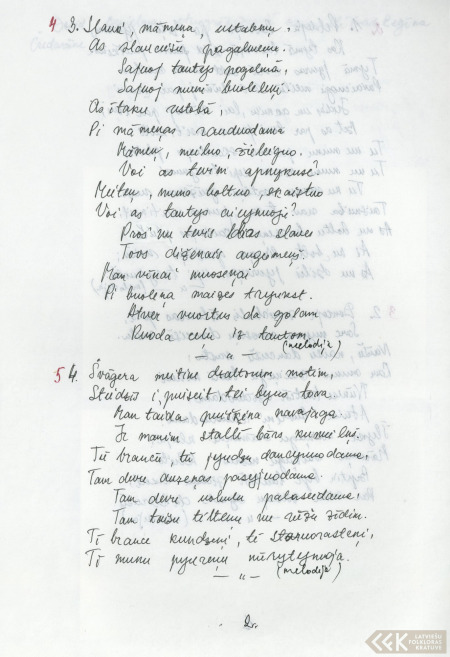 4 3. Slauc', māmeņa, ustabeņu,
As slauceišu pagalmeņu.
Sajuoj tautys pagolmā,
Sajuoj muni buoleleņi.
As ītaku ustobā,
Pi māmeņas rauduodama
Māmeņ, meiluo, žieleiguo.
Voi as tevim apnykuse?
Meiteņ, muna boltuo, skaistuo
Voi as tautys aicynuoju?
Prosi nu tevis slava
Tovs diženais augumeņš.
Man vīnai muoseņai
Pi buoleņa maizes tryukst.
Atver vuortus da golam
Ruoda ceļu iz tautom
(melodija)
— " —
5 4. Švāgera meitine dzaltonim motim,
Steidzīs i puiseit, tei byus tova
Man taida puiškina navajaga
Ir manim stallī bārs kumeliņš.
Tū braucu, tū jyudzu dancynuodama,
Tam devu auzeņas pasyjuodama.
Tam devu yudeņu palaseidama,
Tam taisu tilteņu nu rūžu zīdim.
Tī brauce kundzeņi, tī storuorasteņi,
Tī munu pyureņu nūrytynuoja.
(melodija)
— " —
2r.
LATVIEŠU
FOLKLORAS
KRĀTUVE